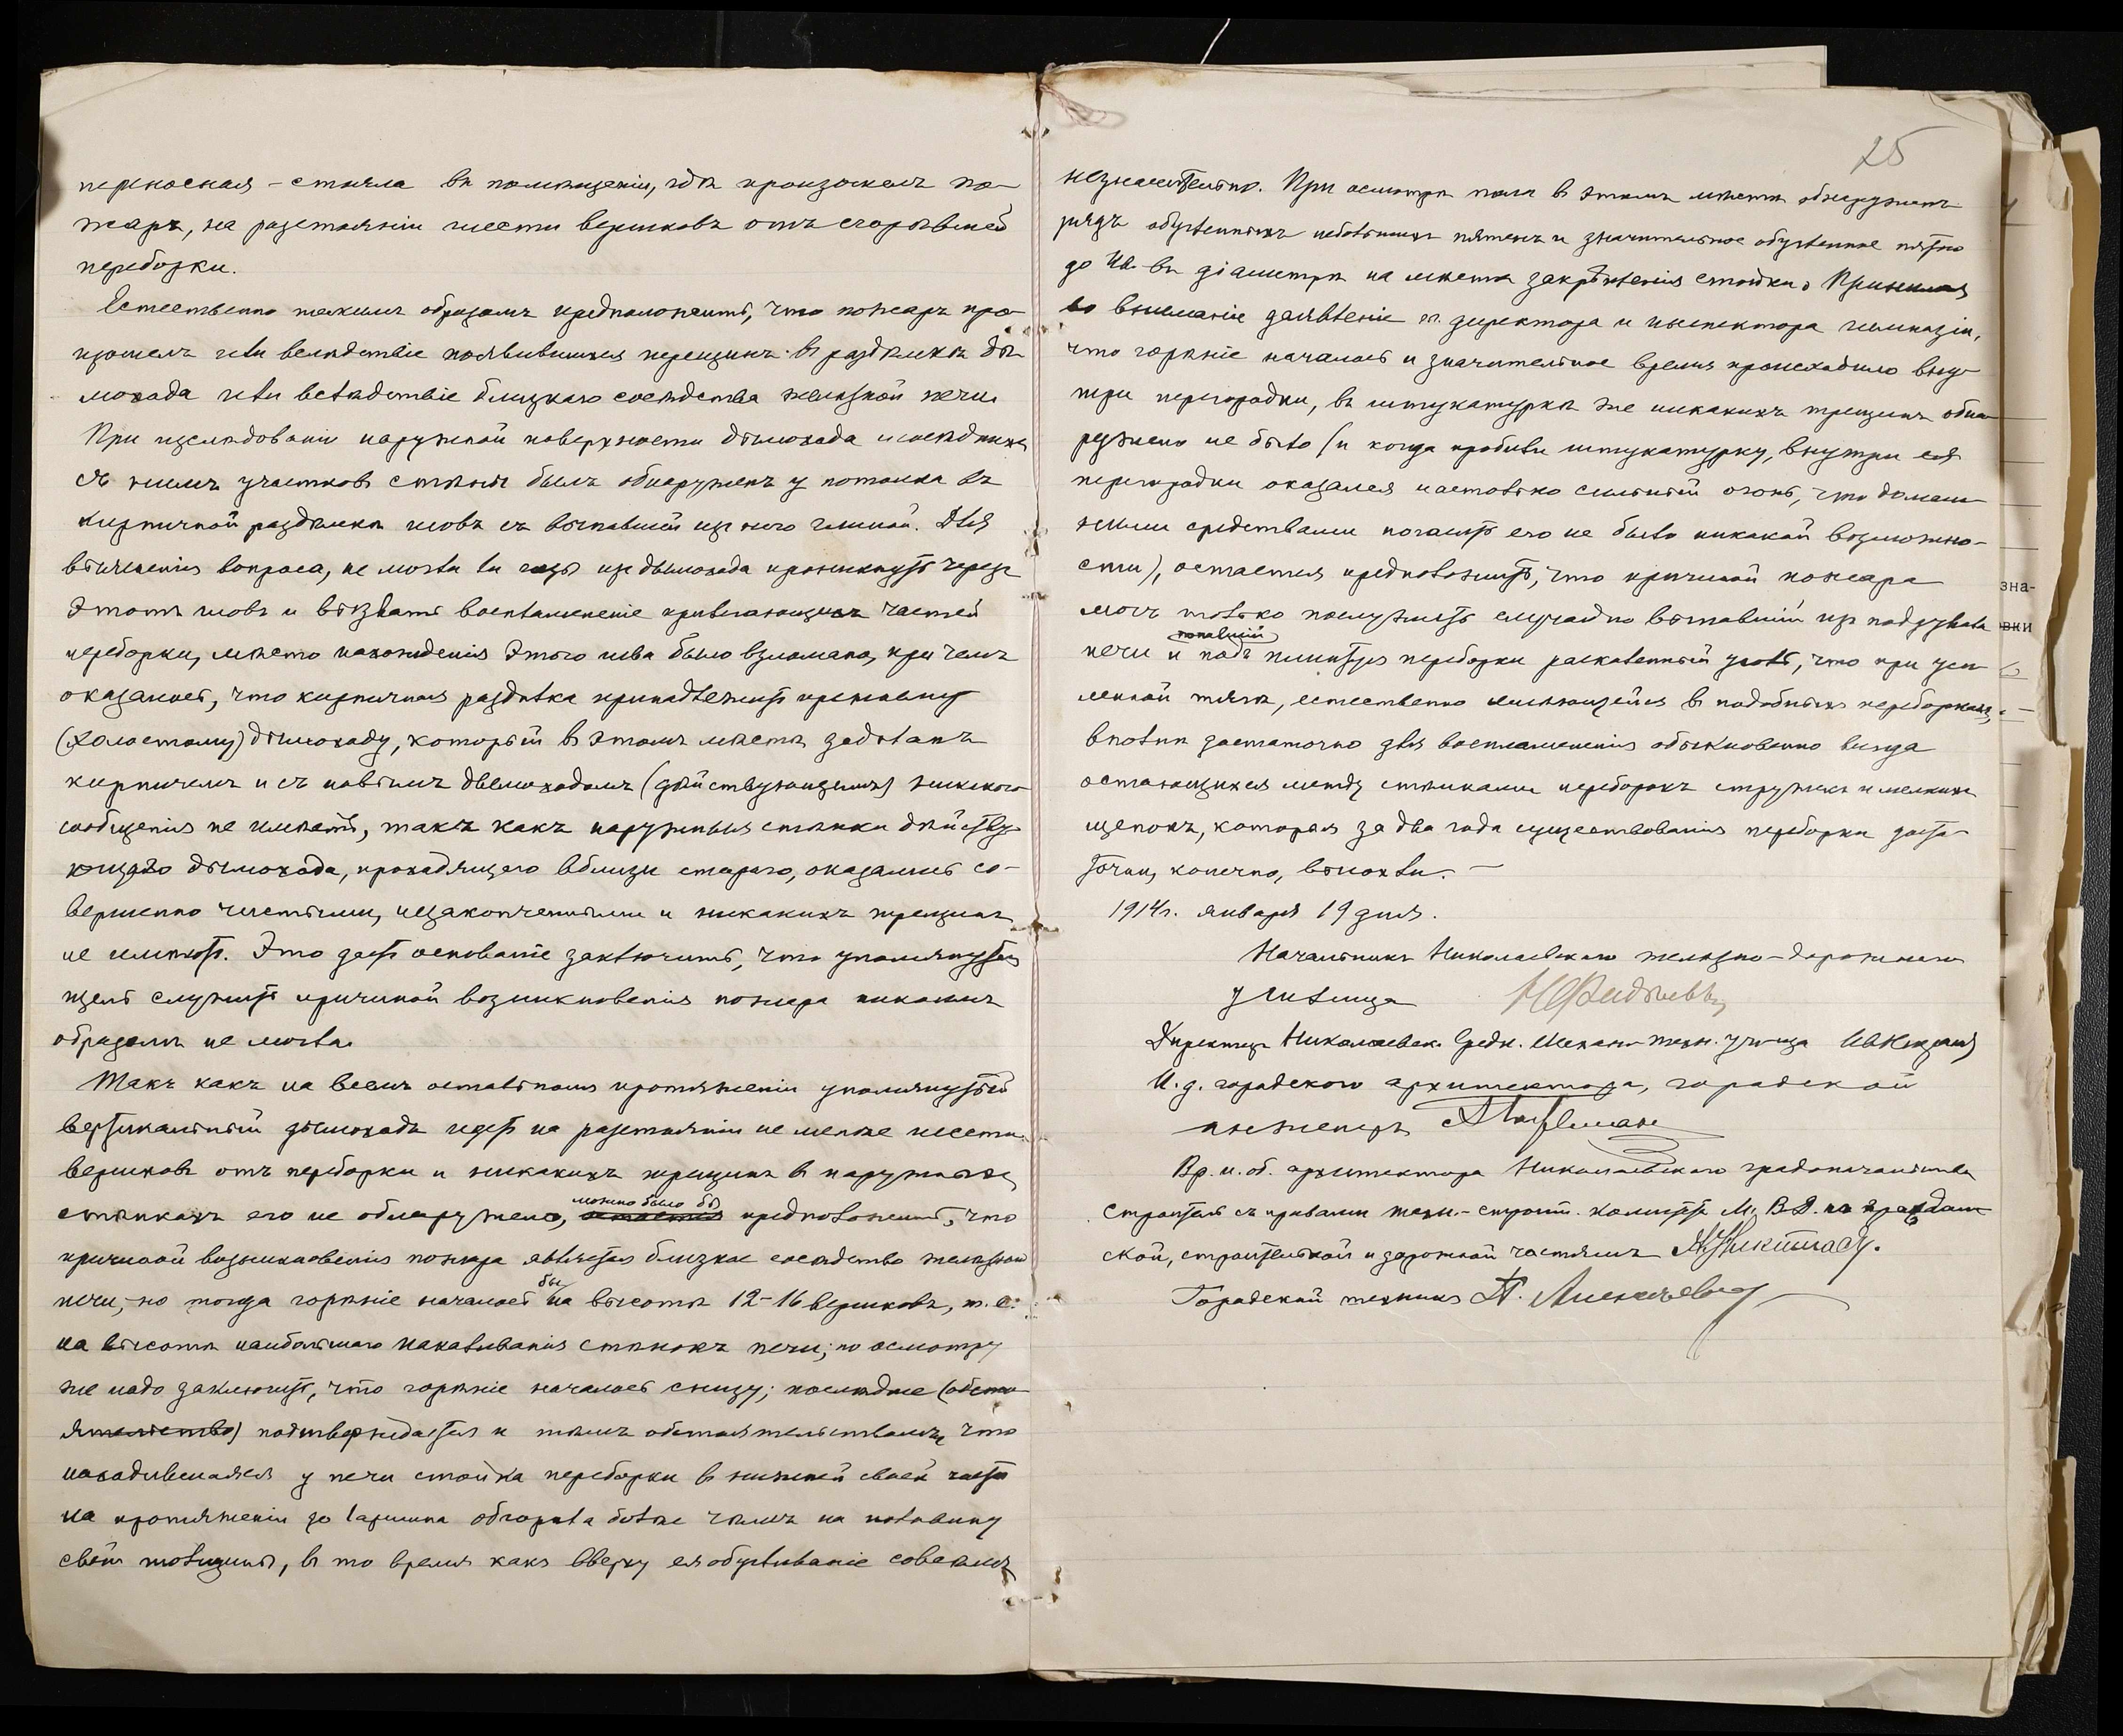 переносная – стояла въ помѣщеніи, гдѣ произошелъ по-
жаръ, на разстояніи шести вершковъ отъ сгорѣвшей
переборки.
Естественно такимъ образомъ предположить, что пожаръ про-
изошелъ или вслѣдствіе появившихся трещинъ въ раздѣлкѣ ды-
мохода или вслѣдствіе близкаго сосѣдства желѣзной печи.
При изслѣдованіи наружной поверхности дымохода и сосѣднихъ
съ нимъ участковъ стѣны былъ обнаруженъ у потолка въ
кирпичной раздѣлкѣ шовъ съ выпавшей изъ него глиной. Для
выясненія вопроса, не могли ли газы изъ дымохода проникнуть черезъ
этотъ шовъ и вызвать воспламененіе прилегающихъ частей
переборки, мѣсто нахожденія этого шва было взломано, при чемъ
оказалось, что кирпичная раздѣлка принадлежитъ прежнему
(холостому) дымоходу, который въ этомъ мѣстѣ задѣланъ
кирпичемъ и съ новымъ дымоходомъ (дѣйствующимъ) никакого
сообщенія не имѣетъ, такъ какъ наружныя стѣнки дѣйству-
ющаго дымохода, проходящаго вблизи стараго, оказались со-
вершенно чистыми, незакопченными и никакихъ трещинъ
не имѣютъ. Это даетъ основаніе заключить, что упомянутая
щель служить причиной возникновенія пожара никакимъ
образомъ не могла.
Такъ какъ на всемъ остальномъ протяженіи упомянутый
вертикальный дымоходъ идетъ на разстояніи не менѣе шести
вершковъ отъ переборки и никакихъ трещинъ въ наружныхъ
стѣнкахъ его не обнаружено, остается можно было бы предположить, что
причиной возникновенія пожара является близкое сосѣдство желѣзной
печи, но тогда горѣніе началось бы на высотѣ 12–16 вершковъ, т. е.
на высотѣ наибольшаго накаливанія стѣнокъ печи; по осмотру
же надо заключить, что горѣніе началось снизу; послѣднее (обсто-
ятельство) подтверждается и тѣмъ обстоятельствомъ, что
находившаяся у печи стойка переборки въ нижней своей части
на протяженіи до 1 аршина обгорѣла болѣе чѣмъ на половину
своей толщины, въ то время какъ вверху ея обугливаніе совсѣмъ
25
незначительно. При осмотрѣ пола въ этомъ мѣстѣ обнаруженъ
рядъ обугленныхъ небольшихъ пятенъ и значительное обугленное пятно
до вк. въ діаметрѣ на мѣстѣ закрѣпленія стойки. Принимая
во вниманіе заявленіе гг. директора и инспектора гимназіи,
что горѣніе началось и значительное время происходило вну-
три перегородки, въ штукатуркѣ же никакихъ трещинъ обна-
ружено не было (и когда пробили штукатурку, внутри ея
перегородки оказался настолько сильный огонь, что домаш-
ними средствами погасить его не было никакой возможно-
сти), остается предположить, что причиной пожара
могъ только послужить случайно выпавшій изъ поддувала
печи и попавшій подъ плинтусъ переборки раскаленный уголь, что при уси-
ленной тягѣ, естественно имѣющейся въ подобныхъ переборкахъ,
вполнѣ достаточно для воспламененія обыкновенно всегда
остающихся между стѣнками переборокъ стружекъ и мелкихъ
щепокъ, которыя за два года существованія переборки доста-
точно, конечно, высохли. –
1914 г. января 19 дня.
Начальникъ Николаевскаго желѣзно-дорожнаго
училища
Директоръ Николаевск. Средн. Механ.-техн. училища
И. д. городского архитектора, городской
инженеръ
Вр. и. об. архитектора Николаевскаго градоначальства
строитель съ правами техн.-строит. комитета М. В. Д. по граждан-
ской, строительной и дорожной частямъ
Городской техникъ
зна-
вки